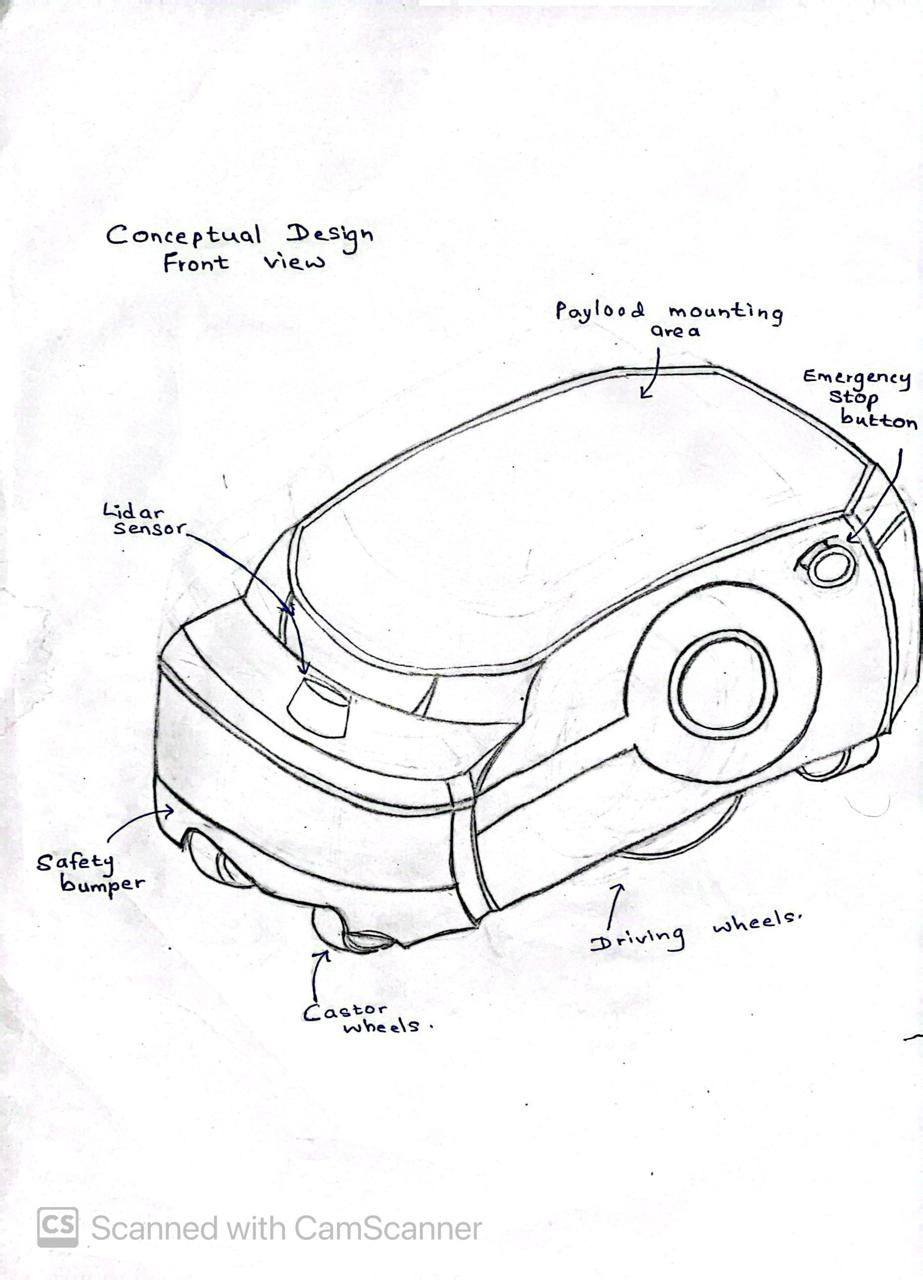 Conceptual Design
Front view
Paylood mounting
area
Emergency
stop
button
Lidar
sensor
Safety
bumper
Driving wheels.
Castor
wheels.
CS Scanned with CamScanner